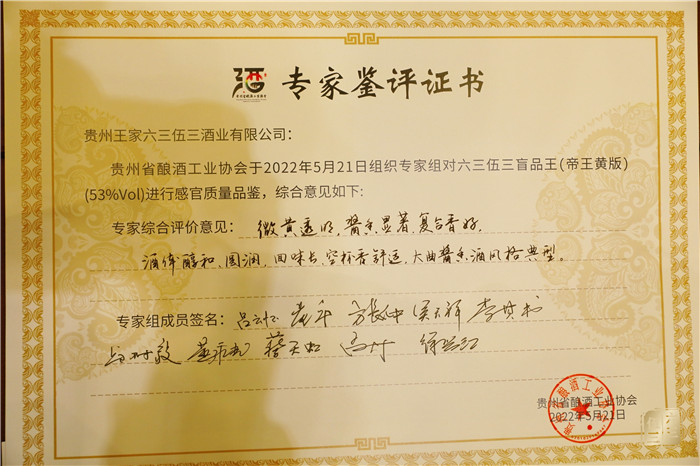 酒
专家鉴评证书
贵州王家六三伍三酒业有限公司：
贵州省酿酒工业协会于2022年5月21日组织专家组对六三伍三盲品王(帝王黄版)
(53%Vol)进行感官质量品鉴，综合意见如下:
专家综合评价意见：微黄透明，酱香显著，复合香好，
酒体醇和、圆润，回味长，空杯香舒适，大曲酱香酒风格典型。
专家组成员签名：
贵州省酿酒工业协会
2022年5月21日